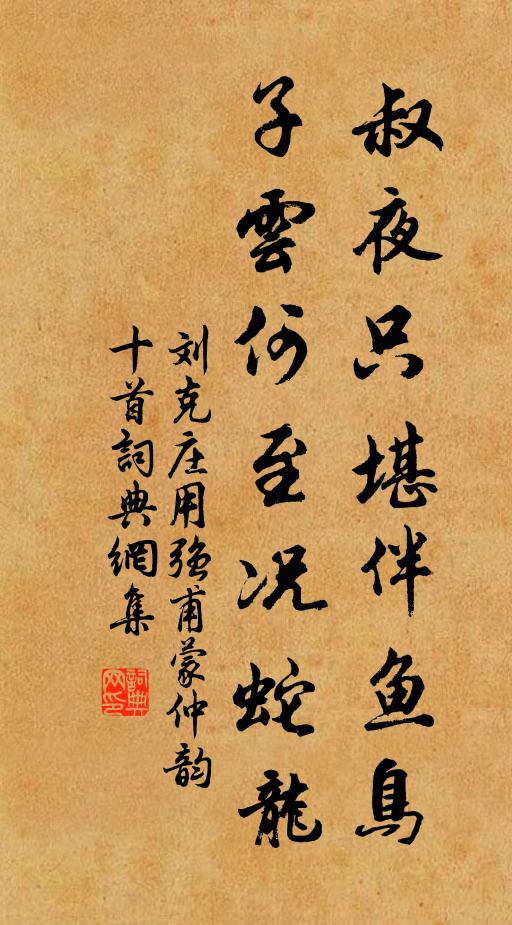 叔夜只堪伴鱼鳥
子雲何至況蛇龍
刘克庄用強甫蒙仲韵
十首詞典網集
詞典網印